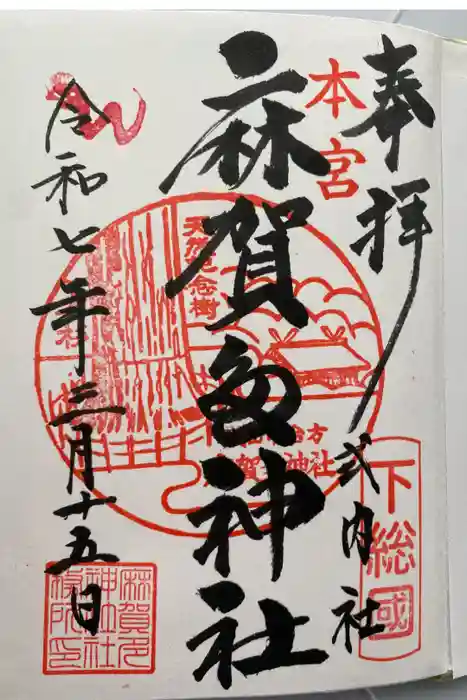 奉拝
本宮
式内社
下総國
麻賀多神社
天然記念樹
麻賀多神社
令和七年三月十五日
麻賀多
神社